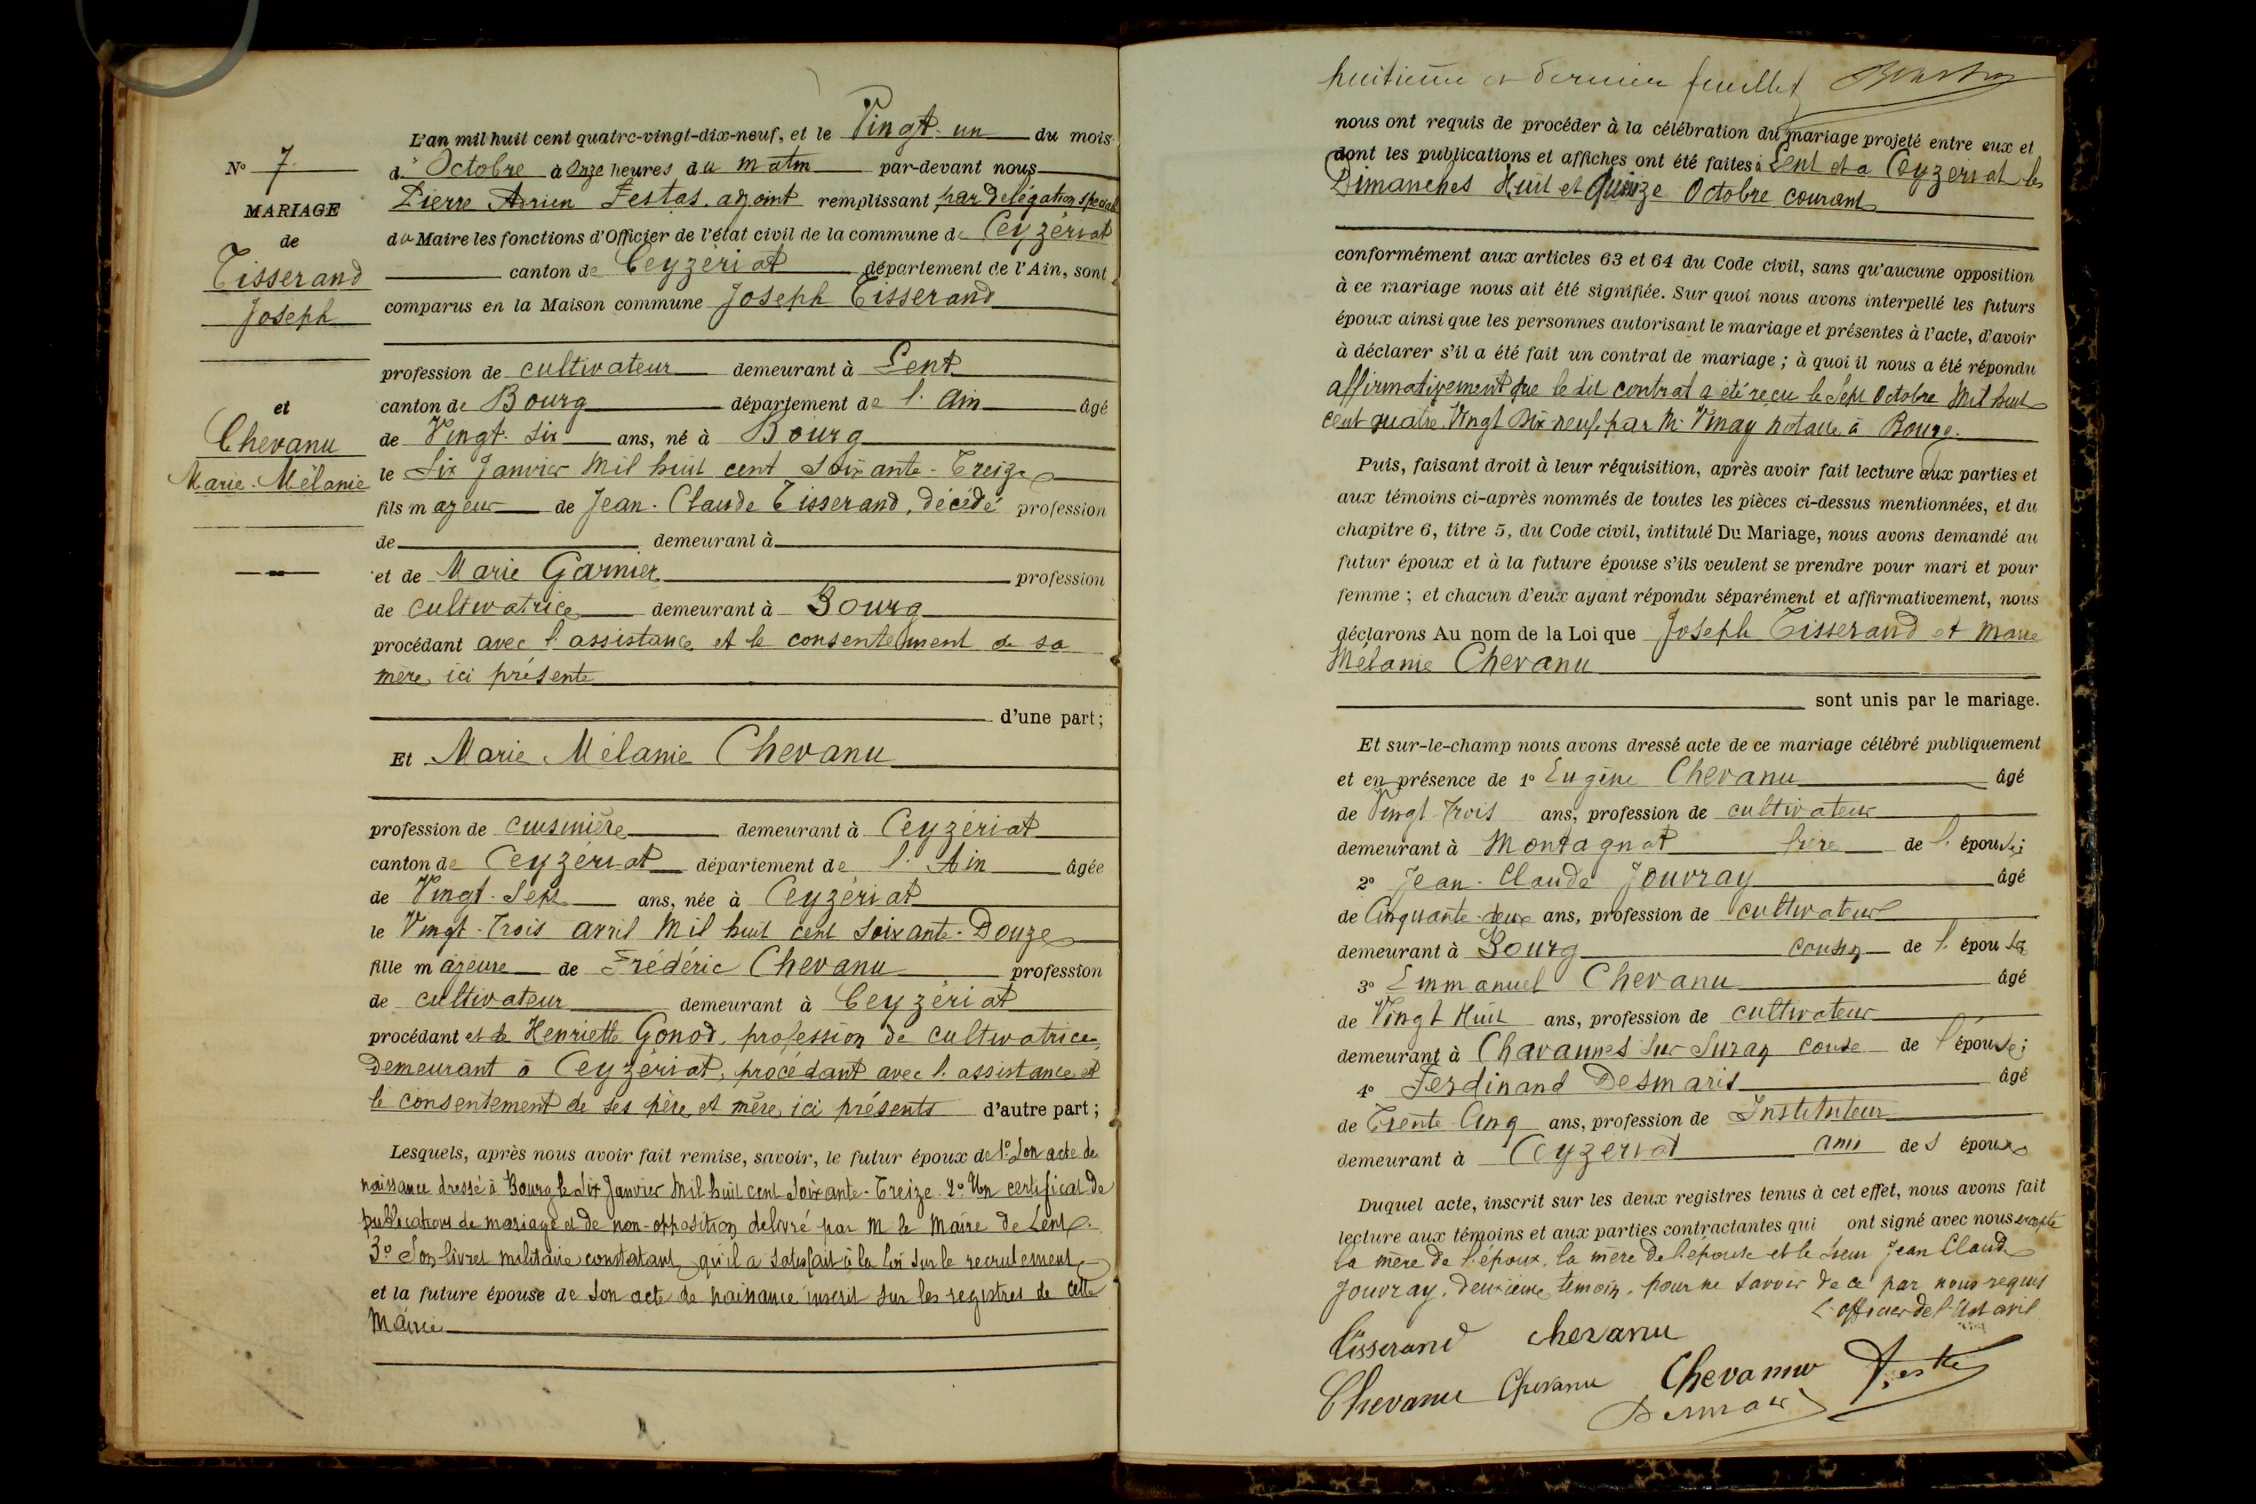 N° 7
MARIAGE
de
Tisserand
Joseph
et
Chevanu
Marie-Mélanie
L'an mil huit cent quatre-vingt-dix-neuf, et le Vingt-un du mois
d' Octobre à Onze heures du matin par-devant nous
Pierre Festas, adjoint remplissant par délégation spéciale
du Maire les fonctions d'Officier de l'état civil de la commune de Ceyzériat
canton de Ceyzeriat département de l'Ain, sont
comparus en la Maison commune Joseph Tisserand
profession de cultivateur demeurant à Lent
canton de Bourg département de l'Ain âgé
de Vingt-six ans, né à Bourg
le Six Janvier Mil huit cent soixante-Treize
fils majeur de Jean-Claude Tisserand, décédé profession
de demeurant à
et de Marie Garnier profession
de cultivatrice demeurant à Bourg
procédant avec l'assistance et le consentement de sa
mère, ici présente
d'une part;
Et Marie Mélanie Chevanu
profession de cuisinière demeurant à Ceyzériat
canton de Ceyzériat département de l'Ain âgée
de Vingt-Sept ans, née à Ceyzériat
le Vingt-Trois avril Mil huit cent soixante-Douze
fille majeure de Frédéric Chevanu profession
de cultivateur demeurant à Ceyzériat
procédant et de Henriette Gonod, profession de cultivatrice,
demeurant à Ceyzériat, procédant avec l'assistance et
le consentement de ses père et mère, ici présents d'autre part;
Lesquels, après nous avoir fait remise, savoir, le futur époux de 1° Son acte de
naissance dressé à Bourg le Six Janvier Mil huit cent soixante-Treize. 2° Un certificat de
publications de mariage et de non-opposition délivré par M le Maire de Lent.
3° Son livret militaire constatant qu'il a satisfait à la loi sur le recrutement
et la future épouse de son acte de naissance inscrit sur les registres de cette
Mairie
huitième et dernier feuillet
nous ont requis de procéder à la célébration du mariage projeté entre eux et
dont les publications et affiches ont été faites à Lent et à Ceyzériat les
Dimanches Huit et Quinze Octobre courant
conformément aux articles 63 et 64 du Code civil, sans qu'aucune opposition
à ce mariage nous ait été signifiée. Sur quoi nous avons interpellé les futurs
époux ainsi que les personnes autorisant le mariage et présentes à l'acte, d'avoir
à déclarer s'il a été fait un contrat de mariage ; à quoi il nous a été répondu
affirmativement que le dit contrat a été reçu le Sept Octobre Mil huit
cent quatre-Vingt Dix neuf par Me Vinay notaire à Bourg.
Puis, faisant droit à leur réquisition, après avoir fait lecture aux parties et
aux témoins ci-après nommés de toutes les pièces ci-dessus mentionnées, et du
chapitre 6, titre 5, du Code civil, intitulé Du Mariage, nous avons demandé au
futur époux et à la future épouse s'ils veulent se prendre pour mari et pour
femme ; et chacun d'eux ayant répondu séparément et affirmativement, nous
déclarons Au nom de la Loi que Joseph Tisserand et Marie
Mélanie Chevanu
sont unis par le mariage.
Et sur-le-champ nous avons dressé acte de ce mariage célébré publiquement
et en présence de 1° Eugène Chevanu âgé
de Vingt-Trois ans, profession de cultivateur
demeurant à Montagnat frère de l'épouse;
2° Jean-Claude Jouvray âgé
de Cinquante-deux ans, profession de cultivateur
demeurant à Bourg cousin de l'épouse
3° Emmanuel Chevanu âgé
de Vingt Huit ans, profession de cultivateur
demeurant à Chavannes sur Suran de l'épouse;
4° Ferdinand Desmaris âgé
de Trente-Cinq ans, profession de Instituteur
demeurant à Ceyzeriat ami des époux
Duquel acte, inscrit sur les deux registres tenus à cet effet, nous avons fait
lecture aux témoins et aux parties contractantes qui ont signé avec nous excepté
la mère de l'époux, la mère de l'épouse et le sieur Jean Claude
Jouvray, deuxième témoin, pour ne savoir de ce par nous requis
L'officier de l'état civil
Tisserand chevanu
Chevanu Chevanu Chevanu Festas
Desmaris